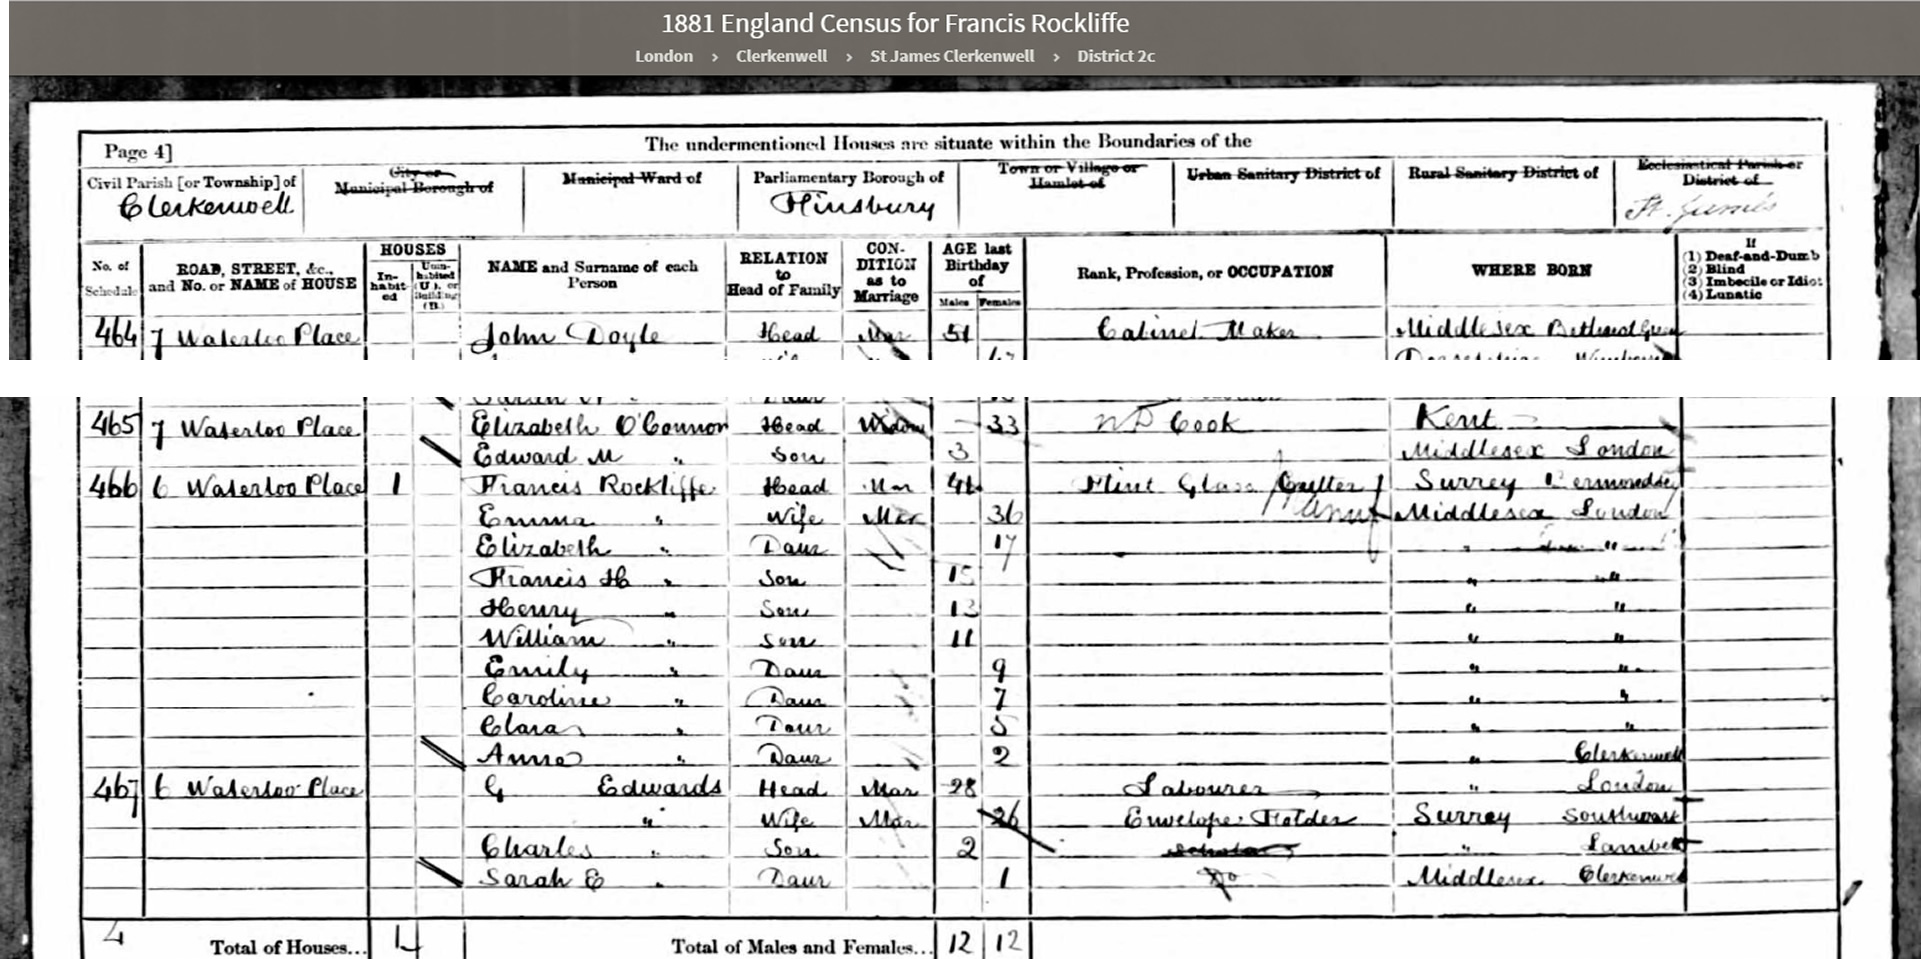 1881 England Census for Francis Rockliffe
London > Clerkenwell > St James Clerkenwell > District 2c
Page 4] The undermentioned Houses are situate within the Boundaries of the
Civil Parish [or Township] of City or Municipal Borough of Municipal Ward of Parliamentary Borough of Town or Village or Hamlet of Urban Sanitary District of Rural Sanitary District of Ecclesiastical Parish or District of
Clerkenwell Finsbury St. James
No. of Schedule ROAD, STREET, &c., and No. or NAME of HOUSE HOUSES In-habit-ed Unin-habited (U.), or Building (B.) NAME and Surname of each Person RELATION to Head of Family CON-DITION as to Marriage AGE last Birthday of Males Females Rank, Profession, or OCCUPATION WHERE BORN If (1) Deaf-and-Dumb (2) Blind (3) Imbecile or Idiot (4) Lunatic
464 7 Waterloo Place John Doyle Head Mar 51 Cabinet Maker Middlesex Bethnal Green
465 7 Waterloo Place Elizabeth O'Connor Head Widow 33 Cook Kent
Edward M " Son 3 Middlesex London
466 6 Waterloo Place 1 Francis Rockliffe Head Mar 41 Flint Glass Cutter Manuf Surrey Bermondsey
Emma " Wife Mar 36 Middlesex London
Elizabeth " Daur 17 " "
Francis H " Son 15 " "
Henry " Son 13 " "
William " Son 11 " "
Emily " Daur 9 " "
Caroline " Daur 7 " "
Clara " Daur 5 " "
Anna " Daur 2 " Clerkenwell
467 6 Waterloo Place G Edwards Head Mar 28 Labourer " London
" Wife Mar 26 Envelope Folder Surrey Southwark
Charles " Son 2 Scholar " Lambeth
Sarah E " Daur 1 Do Middlesex Clerkenwell
4 Total of Houses... 4 Total of Males and Females... 12 12